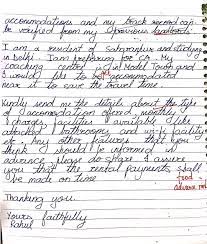 accommodations and my track record can
be verified from my previous landlords
I am a resident of Saharanpur and studying
in Delhi. I am preparing for CA. My
coaching central is in Model Town and
I would like to be accommodated
near it to save the travel time.
Kindly send me the details about the type
of accomodation offered, monthly
charges, facilities available like
attached bathrooms and wi-fi facility
etc. Any other features that you
think I should be informed in
advance please do share. I assure
you that the rental payments shall
be made on time
Food
Advance rent
Thanking you.
Yours faithfully
Rahul